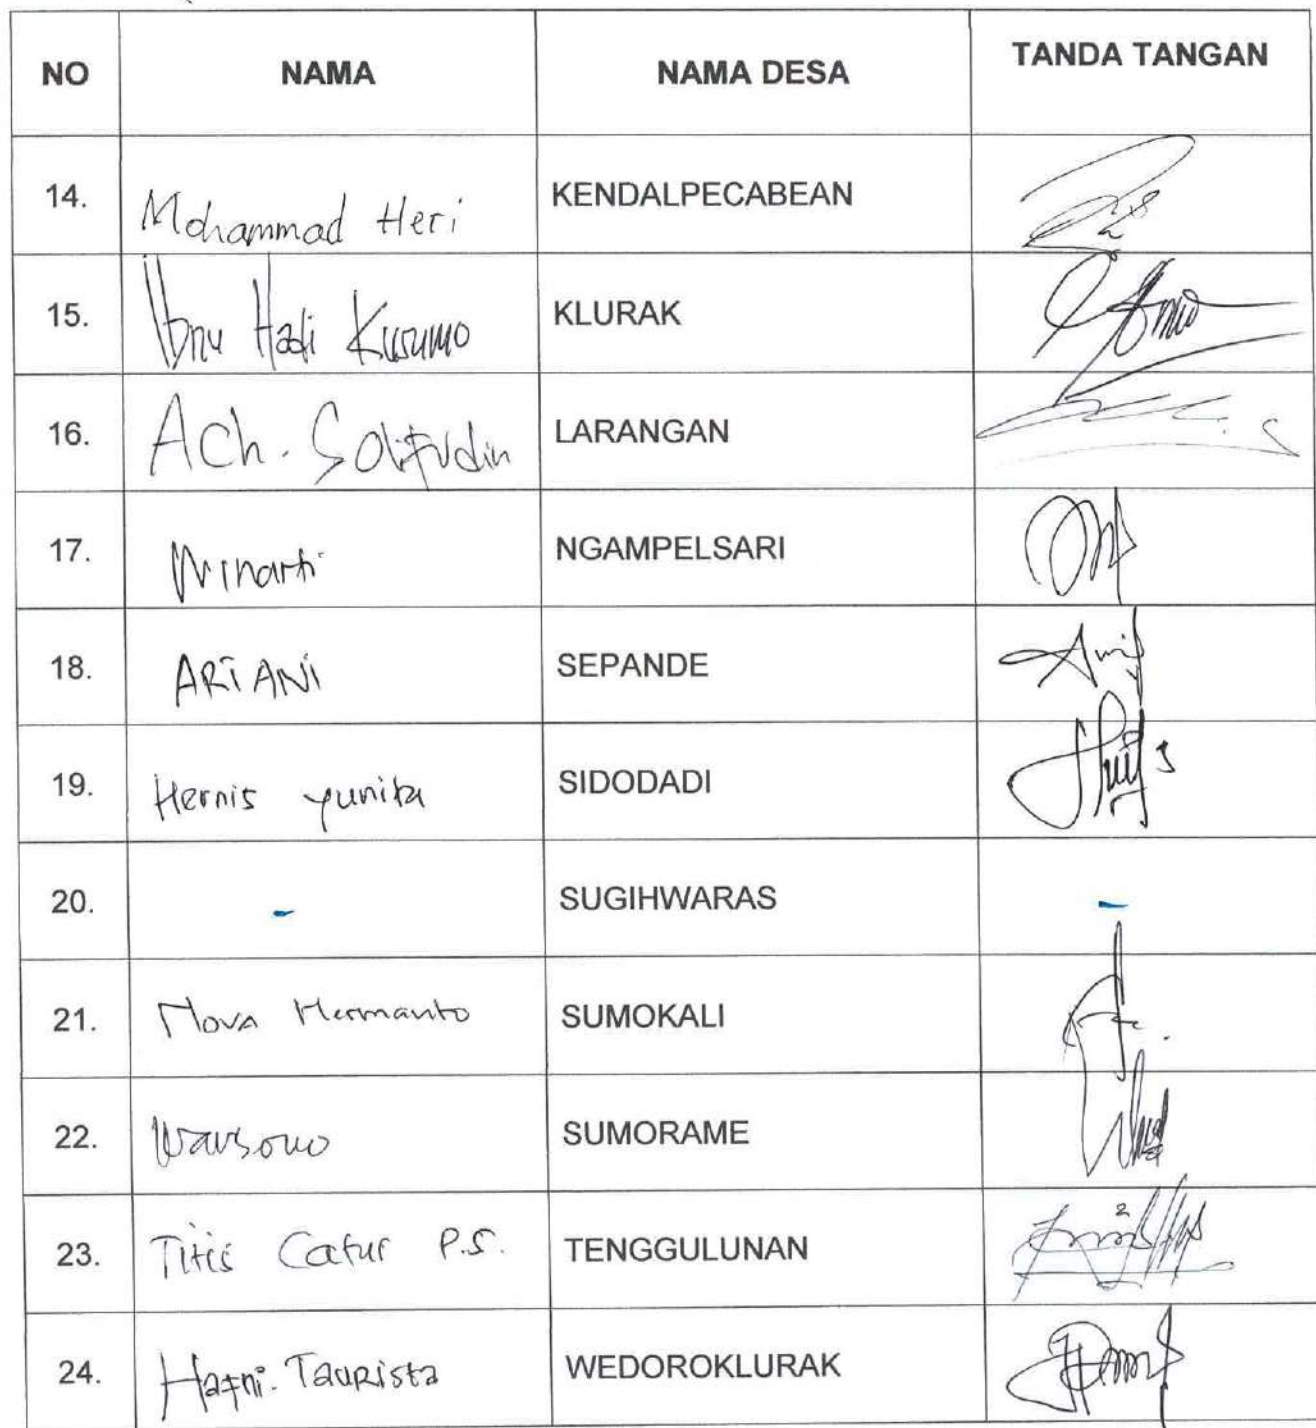 NO NAMA NAMA DESA TANDA TANGAN
14. Mohammad Heri KENDALPECABEAN
15. Ibnu Hadi Kusumo KLURAK
16. Ach. LARANGAN
17. Winarti NGAMPELSARI
18. ARIANI SEPANDE
19. Hernis Yunita SIDODADI
20. - SUGIHWARAS -
21. Nova Hermanto SUMOKALI
22. Warsono SUMORAME
23. Titis Catur P.S. TENGGULUNAN
24. Hafni. Taurista WEDOROKLURAK